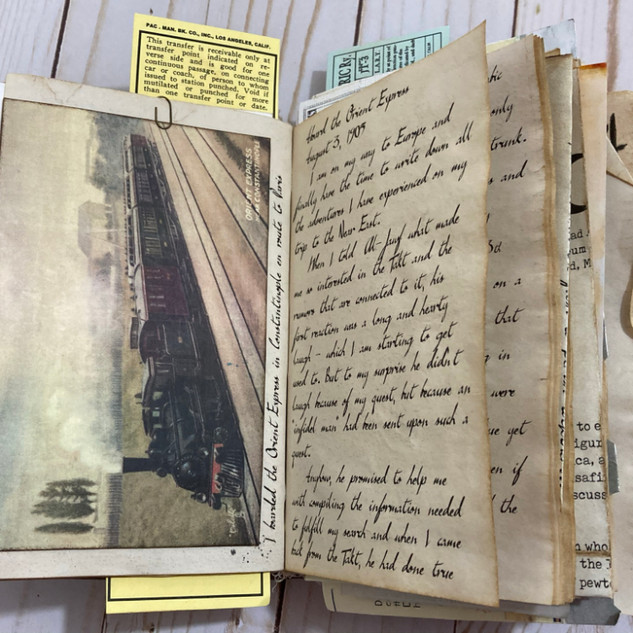 PAC. MAN. BK. CO., INC., LOS ANGELES, CALIF.
This transfer is receivable only at
transfer point indicated on re-
verse side and is good for one
continuous passage, on connecting
car or coach, of person to whom
issued to station punched. Void if
mutilated or punched for more
than one transfer point or date.
ORIENT EXPRESS
CONSTANTINOPLE
I boarded the Orient Express in Constantinople en route to Paris
Aboard the Orient Express
August 3, 1903
I am on my way to Europe and
finally have the time to write down all
the adventures I have experienced on my
trip to the Near East.
When I told what made
me so interested in the Takt and the
rumors that are connected to it, his
first reaction was a long and hearty
laugh - which I am starting to get
used to. But to my surprise he didn't
laugh because of my quest, but because an
"infidel man" had been sent upon such a
quest.
Anyhow, he promised to help me
with compiling the information needed
to fulfill my search and when I came
back from the Takt, he had done true
only
trunk.
and
on a
that
in
were
yet
if
the
to e
who
the
pewt